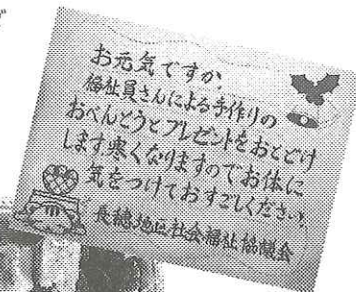 お元気ですか。
福祉員さんによる手作りの
おべんとうとプレゼントをおとどけ
します寒くなりますのでお体に
気をつけておすごしください。
長穂地区社会福祉協議会